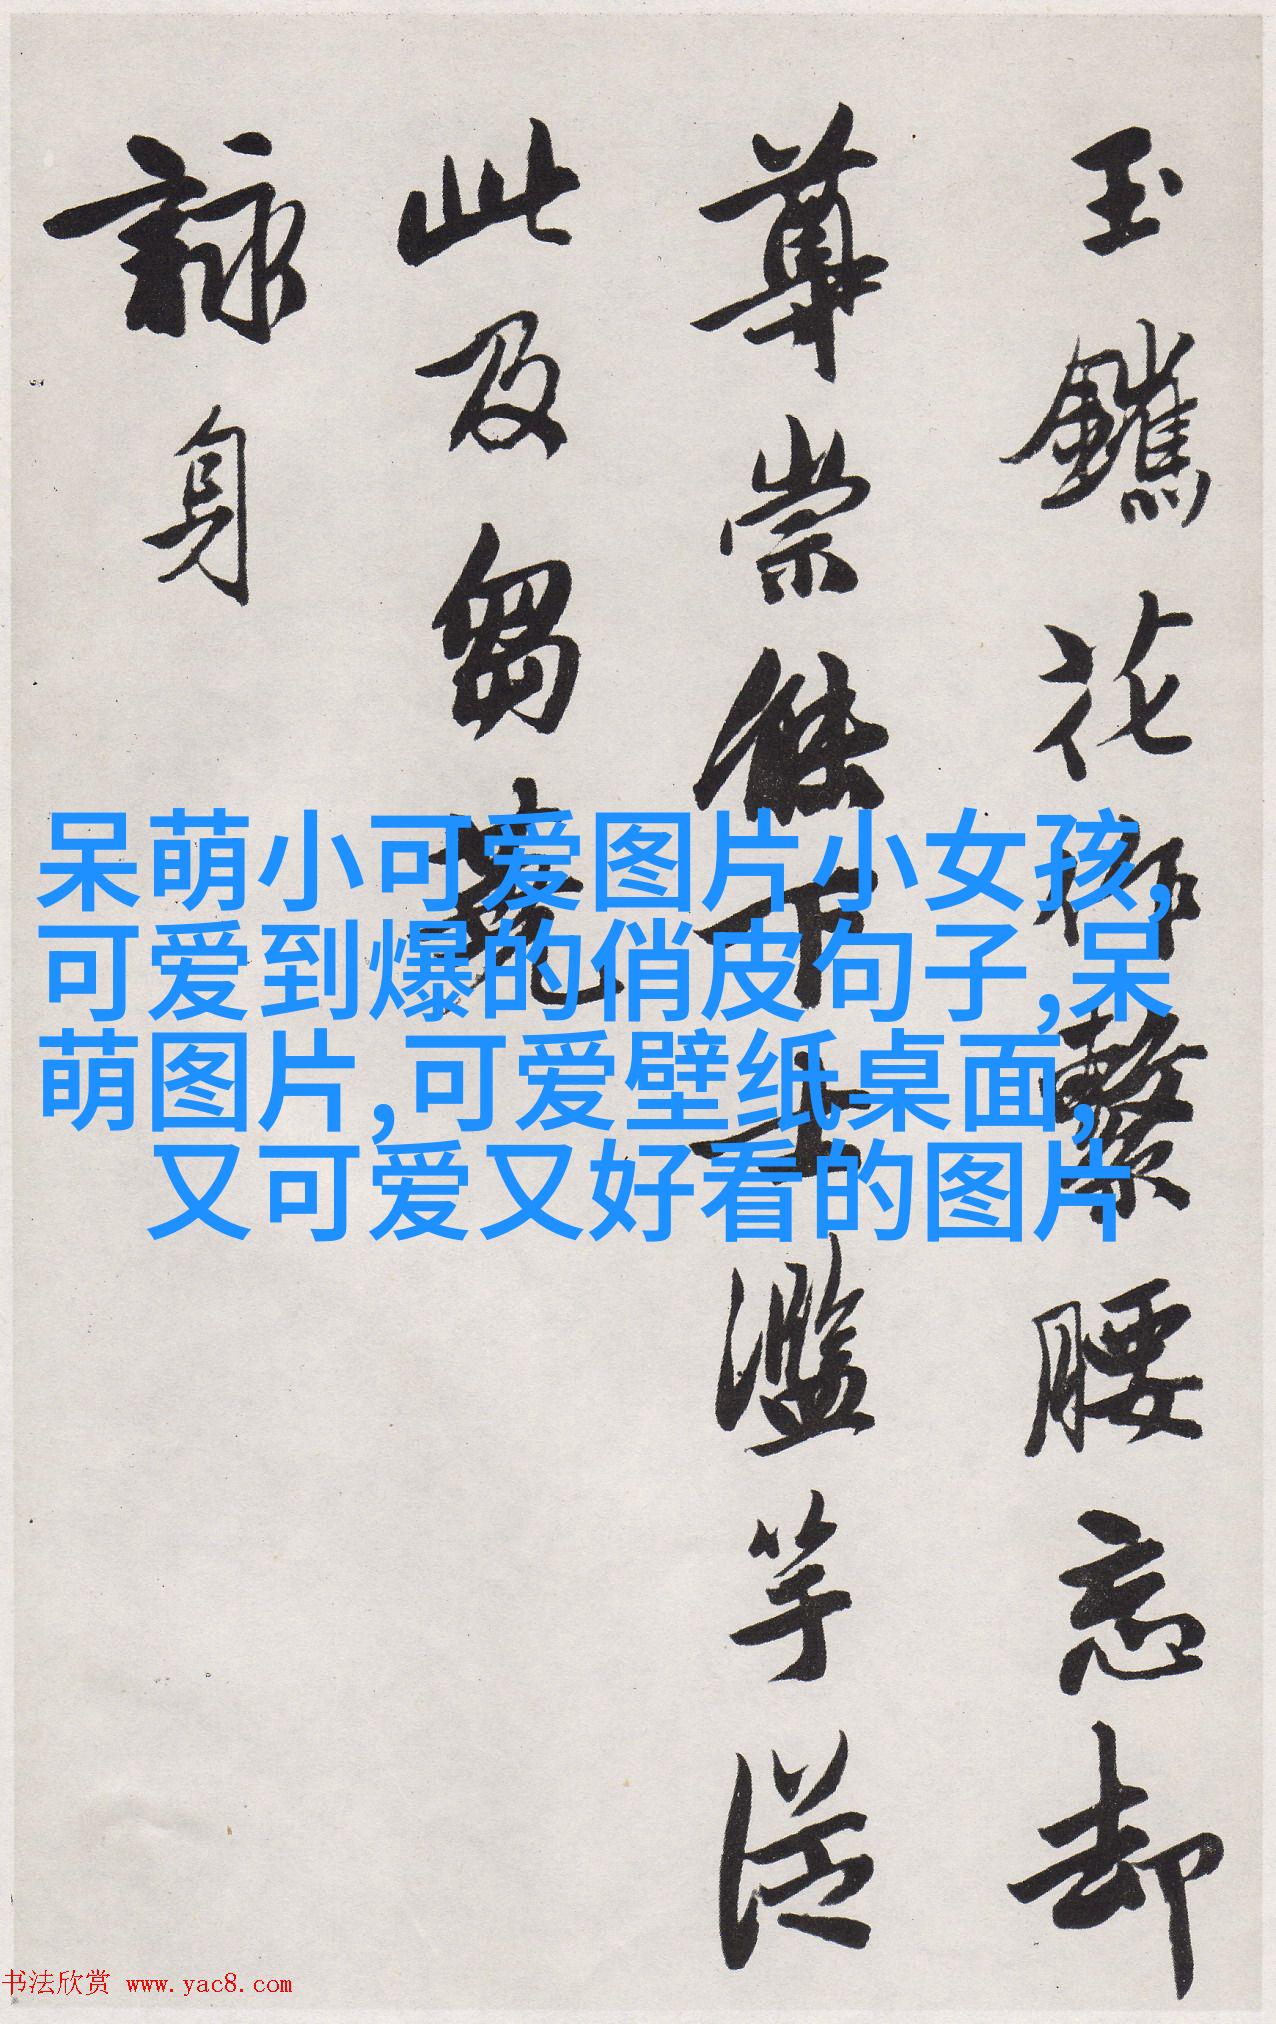 玉鑣花柳繫腰忘却
尊崇傑下士濫竽從
此及芻蕘
詠身
呆萌小可爱图片小女孩,
可爱到爆的俏皮句子,呆
萌图片,可爱壁纸桌面,
又可爱又好看的图片
书法欣赏 www.yac8.com